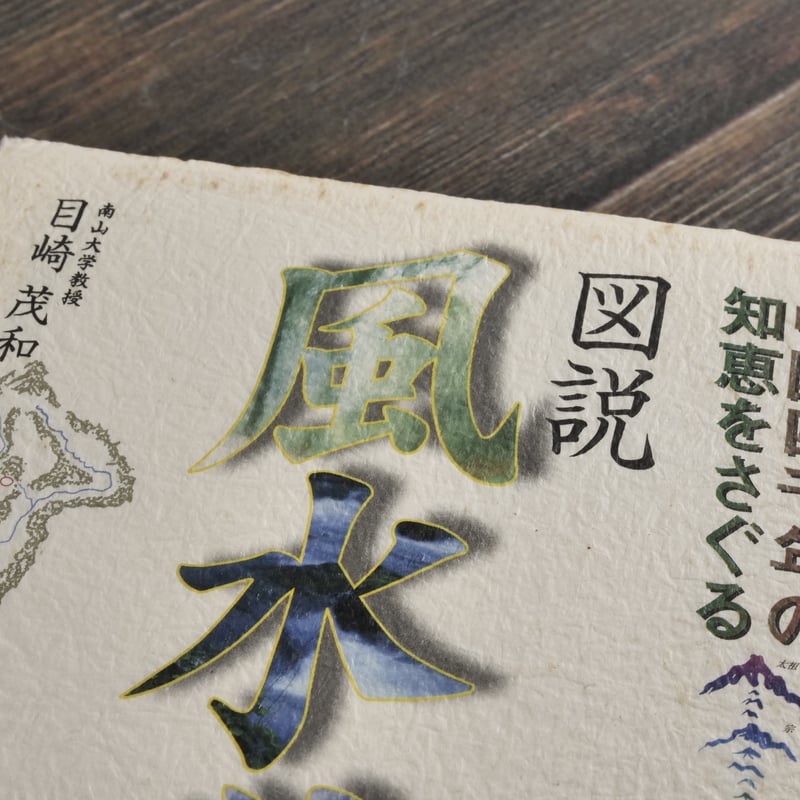 中国四千年の
知恵をさぐる
図説
風水
南山大学教授
目崎 茂和
太祖
宗